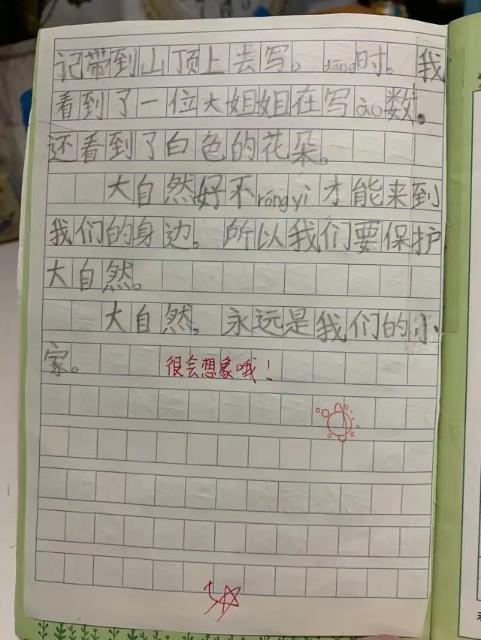 记带到山顶上去写。dāng时。我
看到了一位大姐姐在写ào数。
还看到了白色的花朵。
大自然好不róngyì才能来到
我们的身边。所以我们要保护
大自然。
大自然。永远是我们的小
家。
很会想象哦！